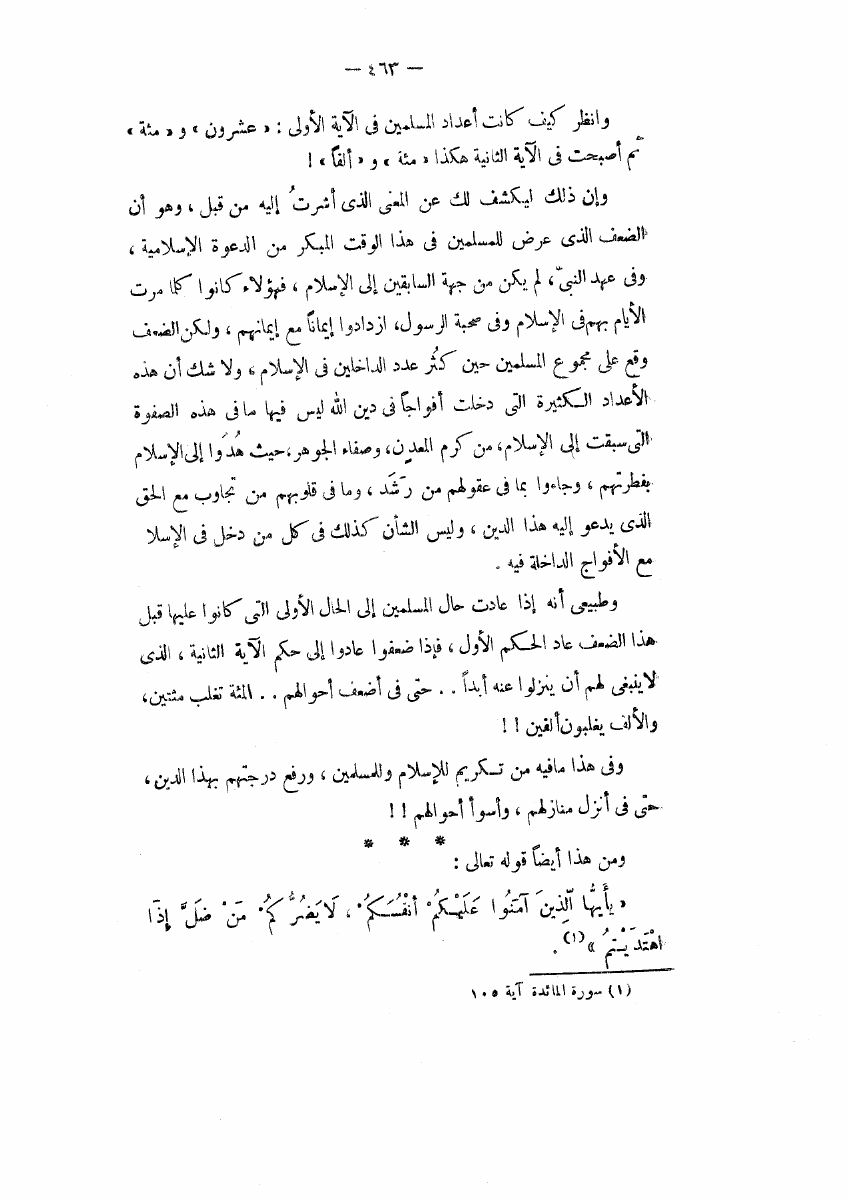 — ٤٦٣ —
وانظر كيف كانت أعداد المسلمين فى الآية الأولى : « عشرون » و « مئة »
ثم أصبحت فى الآية الثانية هكذا « مئة » و « ألفاً » !
وإن ذلك ليكشف لك عن المعنى الذى أشرتُ إليه من قبل ، وهو أن
الضعف الذى عرض للمسلمين فى هذا الوقت المبكر من الدعوة الإسلامية ،
وفى عهد النبىّ ، لم يكن من جهة السابقين إلى الإسلام ، فهؤلاء كانوا كلما مرت
الأيام بهم فى الإسلام وفى صحبة الرسول، ازدادوا إيماناً مع إيمانهم ، ولكن الضعف
وقع على مجموع المسلمين حين كثُر عدد الداخلين فى الإسلام ، ولا شك أن هذه
الأعداد الكثيرة التى دخلت أفواجاً فى دين الله ليس فيها ما فى هذه الصفوة
التى سبقت إلى الإسلام، من كرم المعدن، وصفاء الجوهر، حيث هُدَوا إلى الإسلام
بفطرتهم ، وجاءوا بما فى عقولهم من رَشَد ، وما فى قلوبهم من تجاوب مع الحق
الذى يدعو إليه هذا الدين ، وليس الشأن كذلك فى كل من دخل فى الإسلا
مع الأفواج الداخلة فيه .
وطبيعى أنه إذا عادت حال المسلمين إلى الحال الأولى التى كانوا عليها قبل
هذا الضعف عاد الحكم الأول ، فإذا ضعفوا عادوا إلى حكم الآية الثانية ، الذى
لا ينبغى لهم أن ينزلوا عنه أبداً . . حتى فى أضعف أحوالهم . . المئة تغلب مئتين،
والألف يغلبون ألفين ! !
وفى هذا مافيه من تكريم للإسلام وللمسلمين ، ورفع درجتهم بهذا الدين ،
حتى فى أنزل منازلهم ، وأسوأ أحوالهم ! !
* * *
ومن هذا أيضاً قوله تعالى :
« يأَيُّها الَّذِينَ آمَنُوا عَلَيْكمُ ْ أنْفُسَكمُ ْ ، لَا يَضُرُّ كمُ ْ مَنْ ضَلَّ إِذَا
اهْتَدَيْتمُ ْ » (١) .
(١) سورة المائدة آية ١٠٥